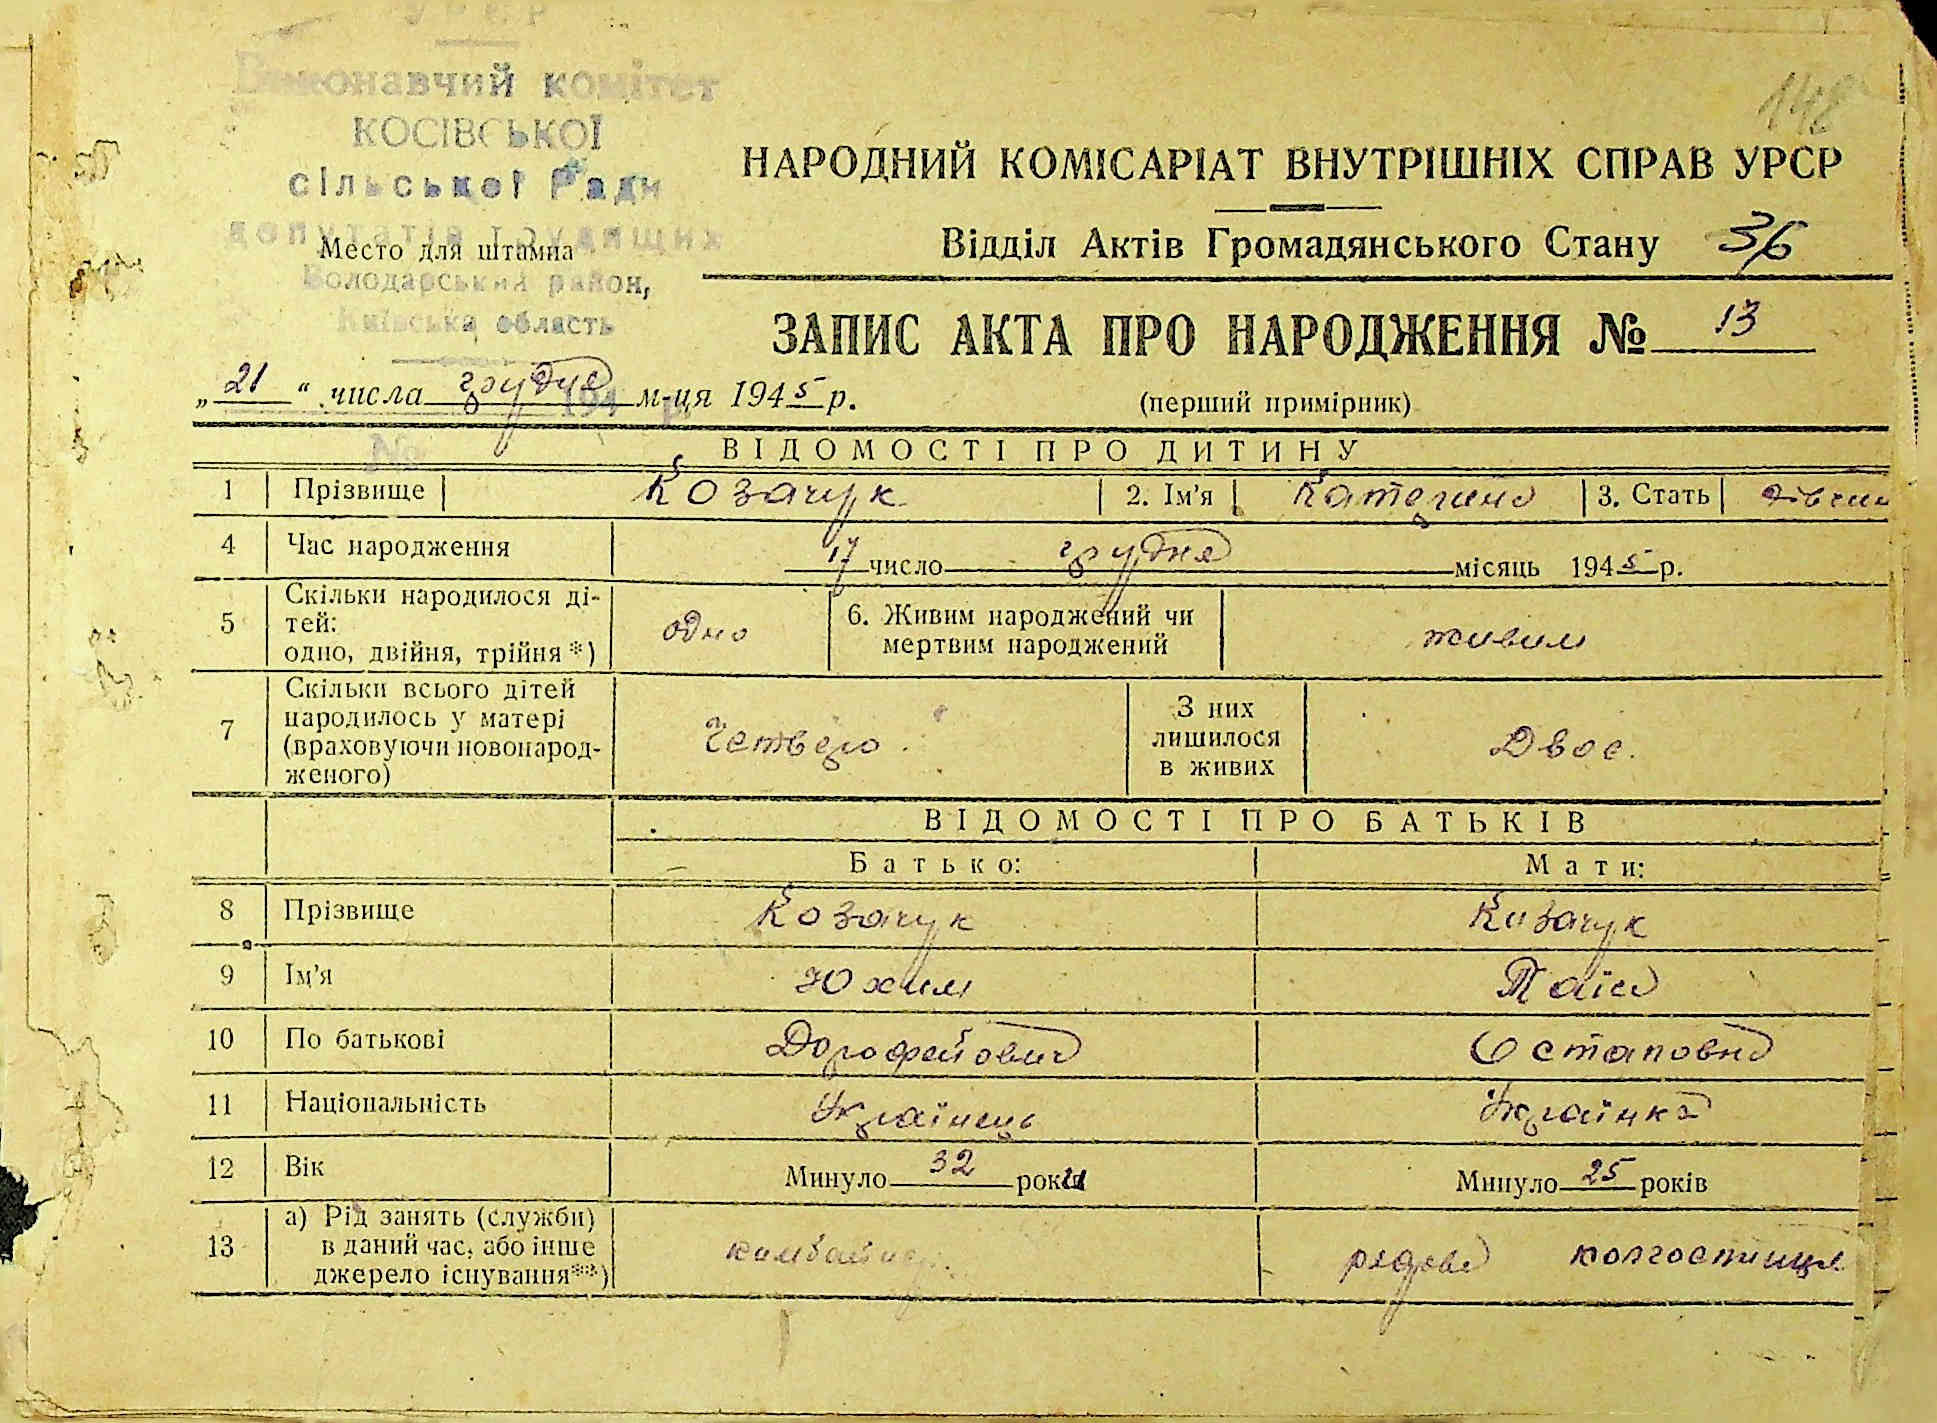 УРСР
Виконавчий комітет
КОСІВСЬКОЇ
сільської Ради
депутатів трудящих
Место для штампа
Володарський район,
Київська область
194 р.
№
148
НАРОДНИЙ КОМІСАРІАТ ВНУТРІШНІХ СПРАВ УРСР
Відділ Актів Громадянського Стану
ЗАПИС АКТА ПРО НАРОДЖЕННЯ № 13
„21“ числа грудня м-ця 1945 р.
(перший примірник)
ВІДОМОСТІ ПРО ДИТИНУ
1 Прізвище Козачук 2. Ім'я Катерина 3. Стать
4 Час народження 17 число грудня місяць 1945 р.
5 Скільки народилося ді-
тей:
одно, двійня, трійня*) одно
6. Живим народжений чи
мертвим народжений живим
7 Скільки всього дітей
народилось у матері
(враховуючи новонарод-
женого) Четверо.
З них
лишилося
в живих Двоє.
ВІДОМОСТІ ПРО БАТЬКІВ
Батько: Мати:
8 Прізвище Козачук Козачук
9 Ім'я Юхим Таїса
10 По батькові Дорофейович Остаповна
11 Національність Українець Українка
12 Вік Минуло 32 роки Минуло 25 років
13 а) Рід занять (служби)
в даний час, або інше
джерело існування**) комбайнер. рядова колгоспниця